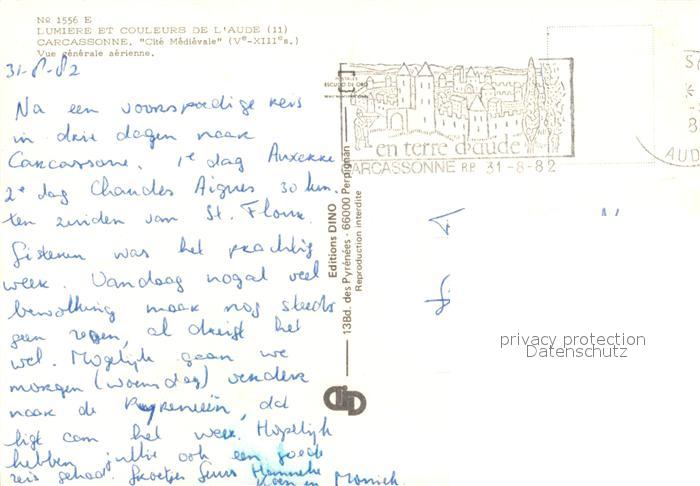 No 1556 E
LUMIERE ET COULEURS DE L'AUDE (11)
CARCASSONNE, "Cité Médiévale" (Ve-XIIIe s.)
Vue générale aérienne.
31-8-82
Na een voorspoedige reis
in drie dagen naar
Carcassonne. 1e dag Auxerre
2e dag Chaudes Aigues 30 km.
ten zuiden van St. Flour.
Gisteren was het prachtig
weer. Vandaag nogal veel
bewolking maar nog steeds
geen regen, al dreigt het
wel. Mogelijk gaan we
morgen (woensdag) verder
naar de Pyreneeën, dat
ligt aan het weer. Hopelijk
hebben jullie ook een goede
reis gehad. Groetjes Guus Hanneke
Koen en Moniek.
en terre d'aude
CARCASSONNE RP 31-8-82
AUD
Editions DINO
13Bd. des Pyrénées - 66000 Perpignan
Reproduction interdite
privacy protection
Datenschutz